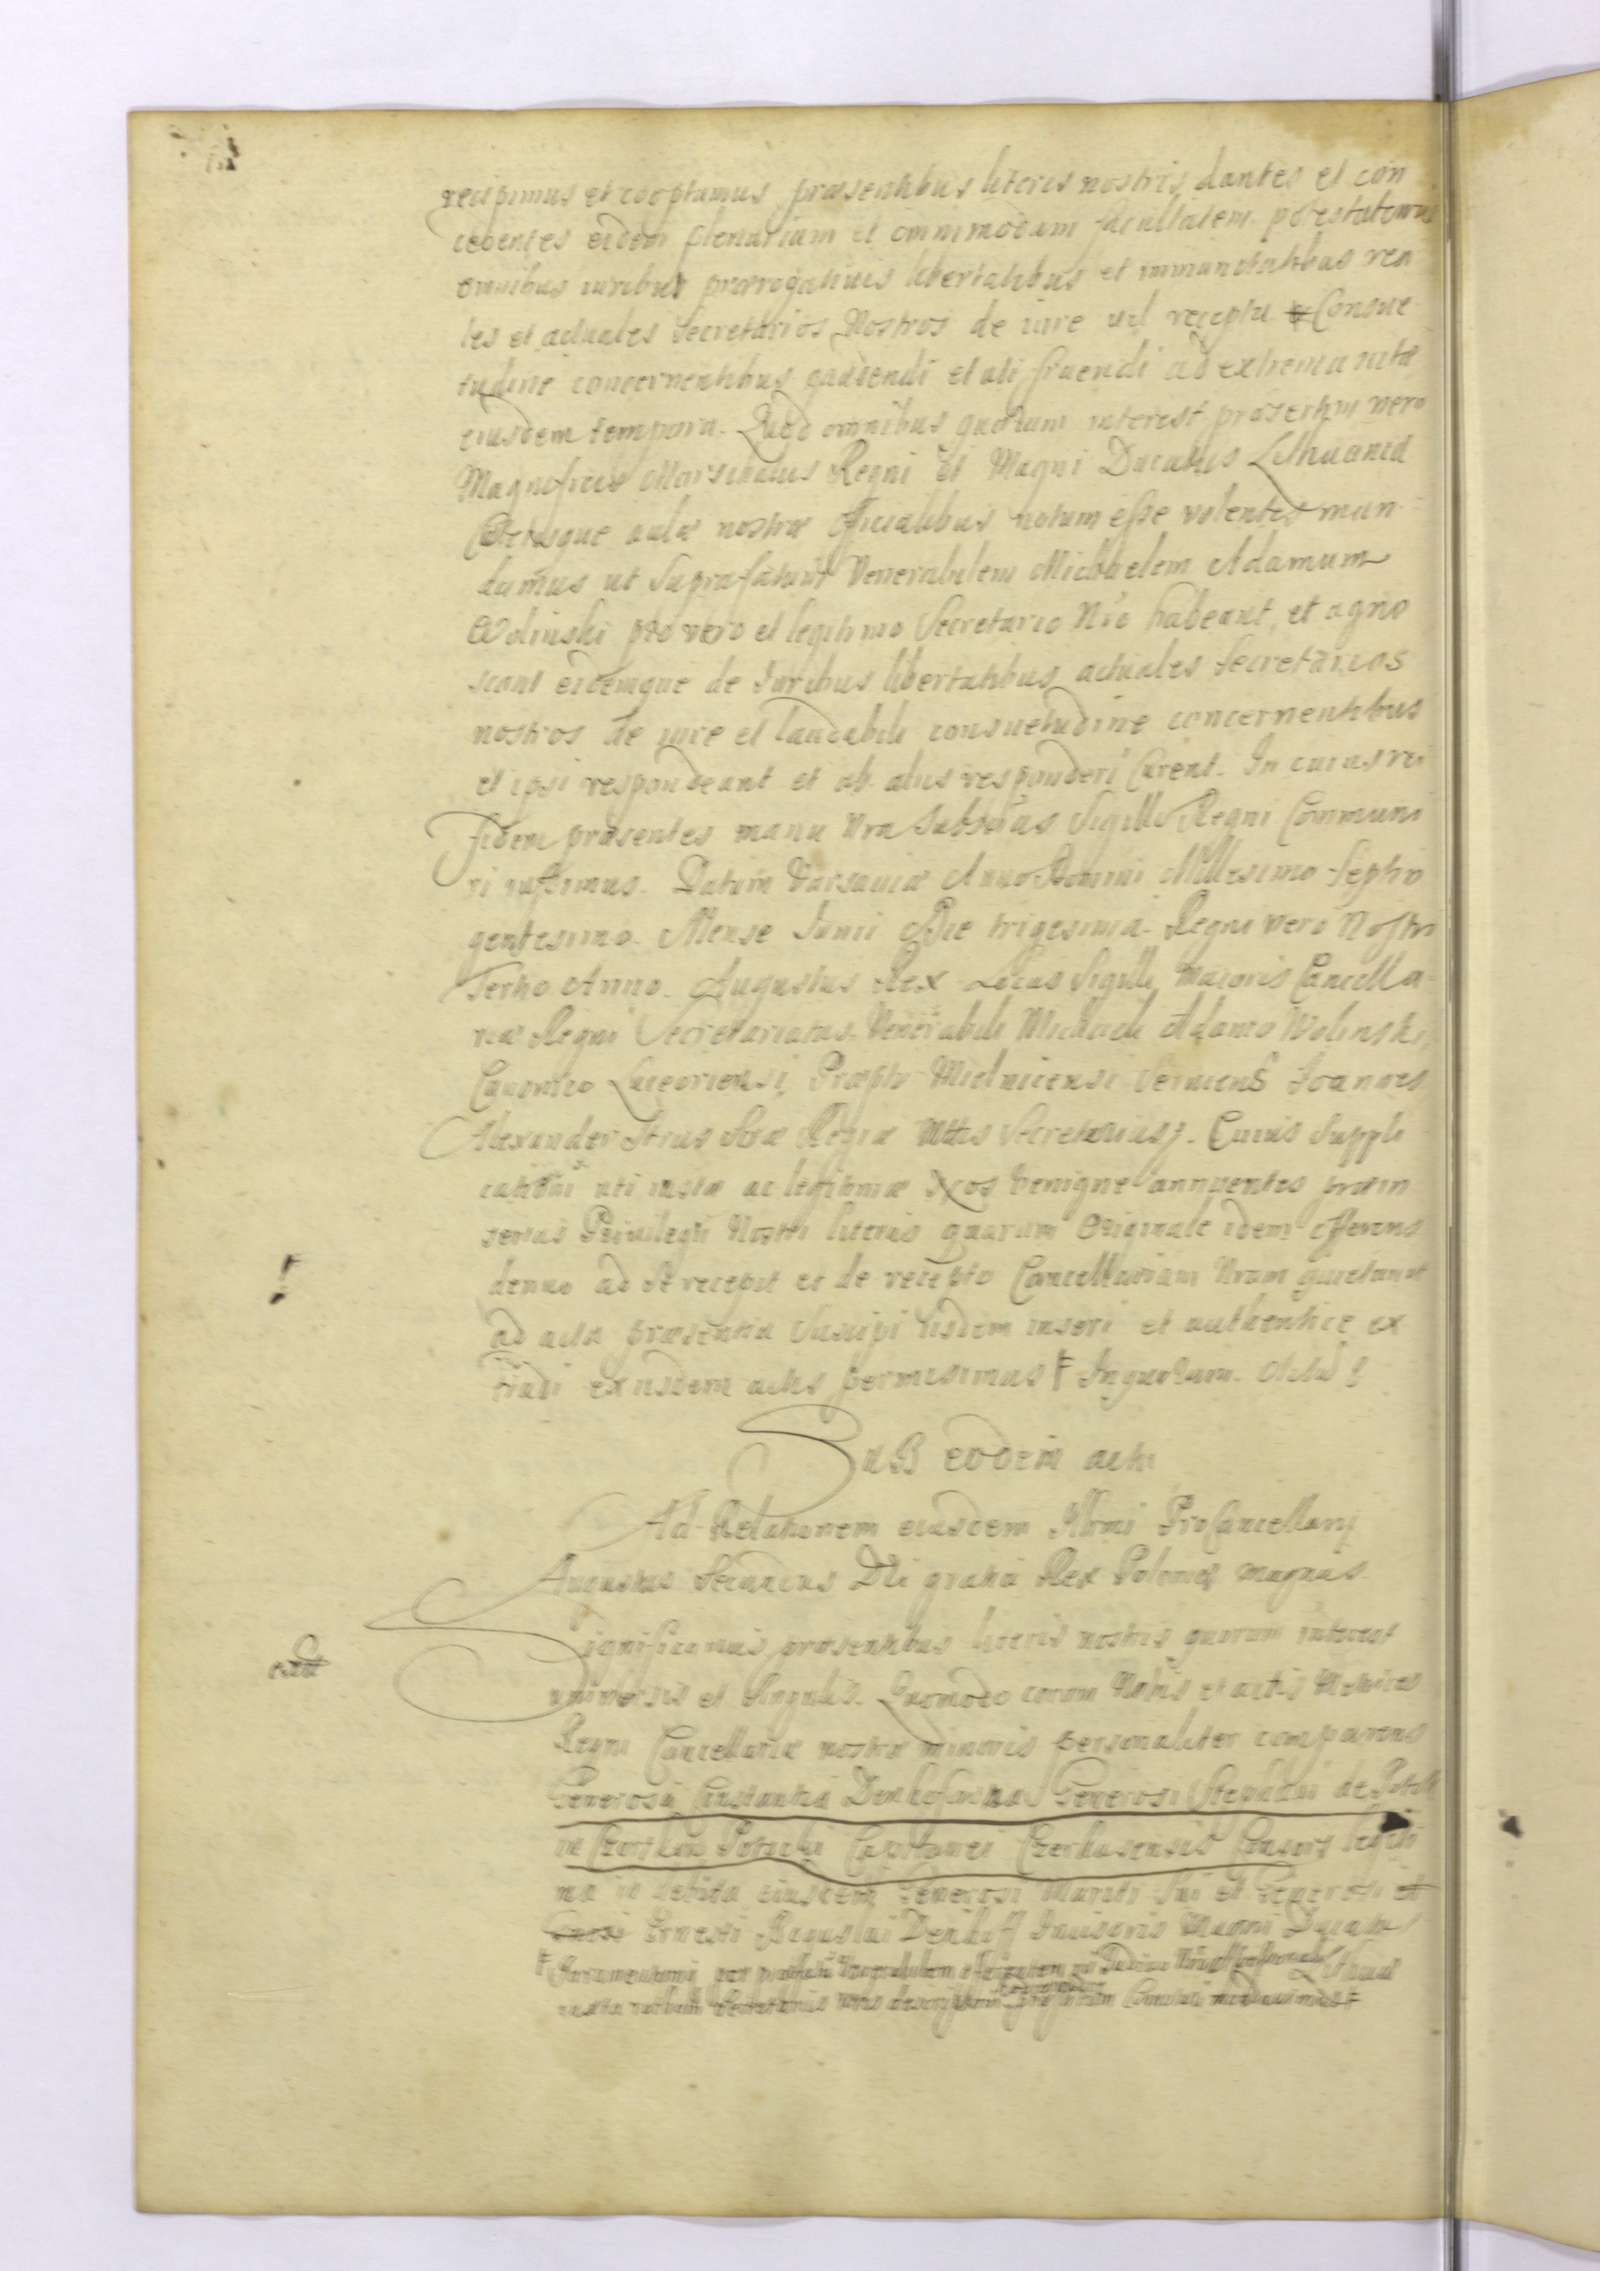 recipimus et cooptamus præsentibus literis nostris dantes et con
cedentes eidem plenariam et omnimodam facultatem potestatem
omnibus iuribus prærogatiuis libertatibus et immunitatibus rea
les et actuales Secretarios Nostros de iure vel recepta Consue
tudine concernentibus gaudendi et uti fruendi ad extrema vitæ
eiusdem tempora. Quod omnibus quorum interest præsertim vero
Magnificis Marschalcis Regni et Magni Ducatus Lithuaniæ
Cæterisque aulæ nostræ Officialibus notum esse volentes man
damus ut Suprafatum Venerabilem Michaelem Adamum
Wolinski pro vero et legitimo Secretario Nro habeant, et agno
scant eidemque de Iuribus libertatibus actuales Secretarios
nostros de iure et laudabili consuetudine concernentibus
et ipsi respondeant et ab alijs responderi Curent. In cuius rei
Fidem præsentes manu Nra Subscrias Sigillo Regni Communi
ri iussimus. Datum Varsauiæ Anno Domini Millesimo Septin
gentesimo. Mense Iunii Die trigesima. Regni vero Nostri
Tertio Anno. Augustus Rex Locus Sigilli Maioris Cancella
riæ Regni Secretariatus Venerabili Michaeli Adamo Wolinski,
Canonico Luceoriensi, Præpto Mielnicensi Seruiens Ioannes
Alexander Sræ Regiæ Mttis Secretarius. Cuius Suppli
cationi uti iustæ ac legitimæ Nos benigne annuentes præin
sertas Priuilegii Nostri literas quarum Originale idem offerens
denuo ad Se recepit et de recepto Cancellariam Nram quietauit
ad acta præsentia Suscipi iisdem inseri et authentice ex
tradi ex iisdem actis permisimus Ŧ In quorum. Actu
SuB eodem actu
Ad Relationem eiusdem Illmi ProCancellarij
Augustus Secundus Dei gratia Rex Poloniæ magnus
Significamus præsentibus literis nostris quorum interest
vniuersis et Singulis. Quomodo coram Nobis et actis Metrices
Regni Cancellariæ nostræ minoris personaliter comparens
Generosa Constantia Denhofowna Generosi Stephani de Potok
Potocki Capitanei Czerkasensis Consors legiti
ma in debita eiusdem Generosi Mariti Sui et Generosi et
Ernesti Denhoff Incisoris Magni Ducatus
Lithuaniæ
iuxta Secretarijs